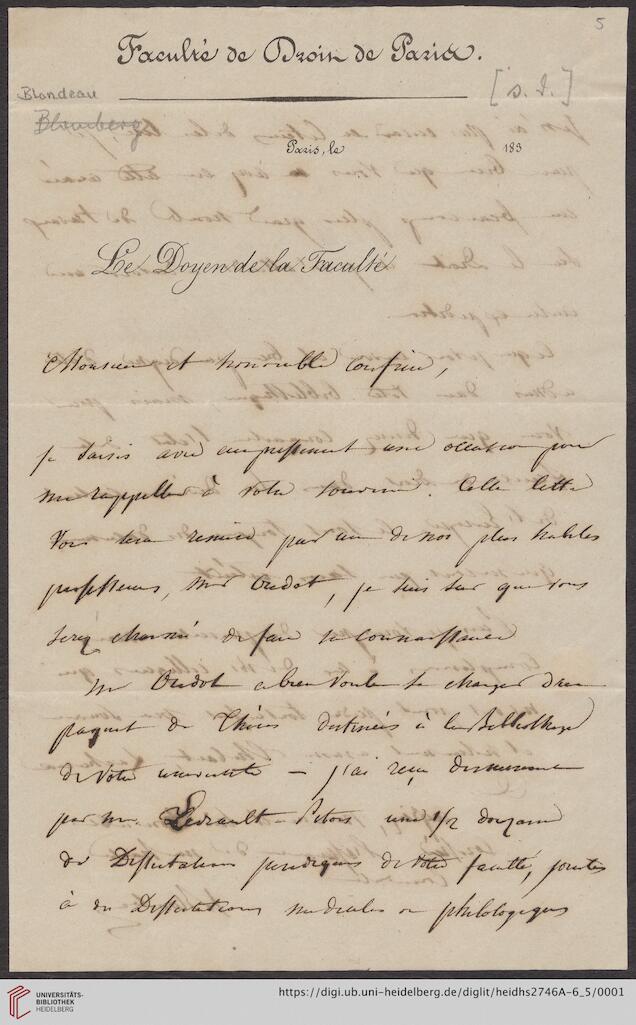 5
Faculté de Droit de Paris.
Blondeau
[s. d.]
Blumberg
Paris, le 183
Le Doyen de la Faculté
Monsieur et honorable confrère,
je saisis avec empressement une occasion pour
me rappeller à votre souvenir. Cette lettre
vous sera remise par un de nos plus habiles
professeurs, Mr Oudot, je suis sur que vous
serez charmé de faire sa connaissance
Mr Oudot a bien voulu se charger d'un
paquet de Thèses destinées à la Bibliothèque
de votre université – j'ai reçu
par Mr Levrault – Pitois une 1/2 douzaine
de Dissertations juridiques de votre faculté, jointes
à des Dissertations médicales ou philologiques
UNIVERSITÄTS-
BIBLIOTHEK
HEIDELBERG
https://digi.ub.uni-heidelberg.de/diglit/heidhs2746A-6_5/0001